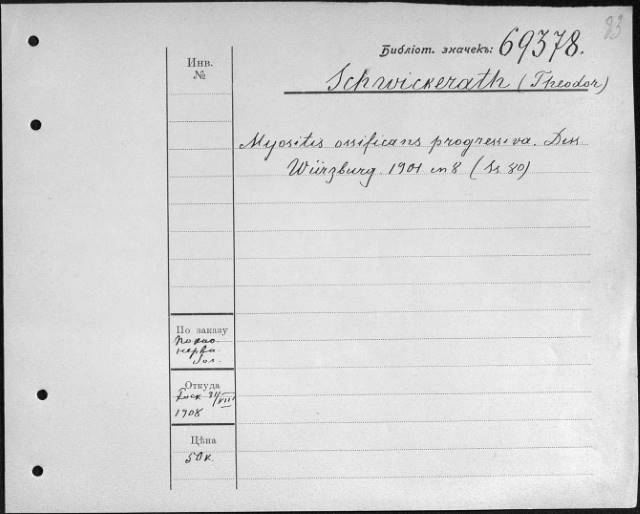 83
Библіот. значекъ: 69378.
Инв.
№
Schwickerath (Theodor)
Myositis ossificans progressiva. Diss
Würzburg. 1901 in 8 (Ss 30)
По заказу
Откуда
21/VIII
1908
Цѣна
50 к.